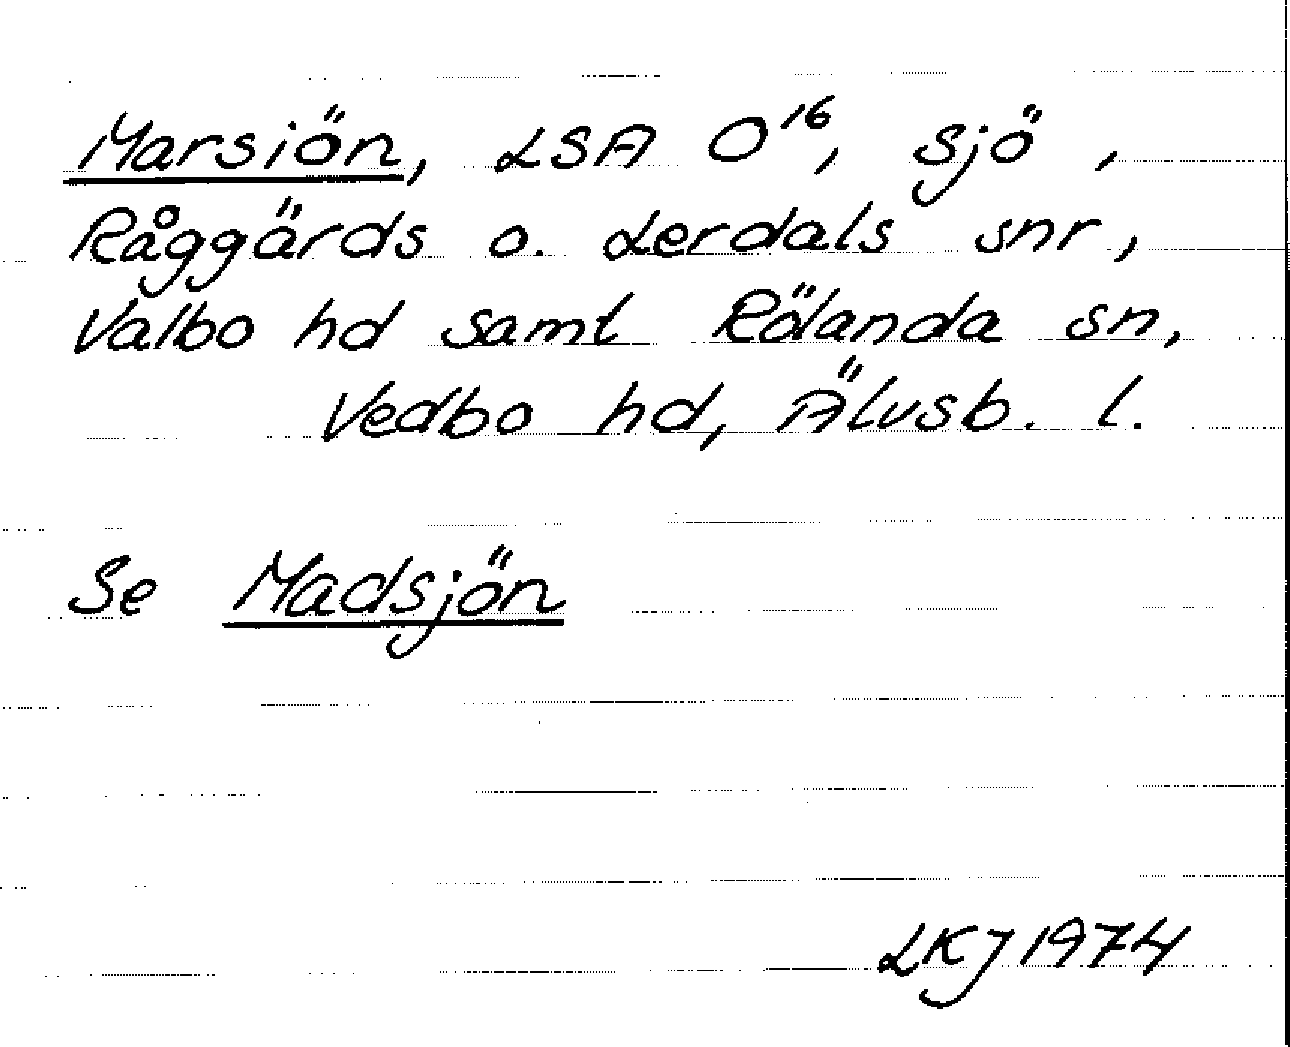 Marsiön, LSA O¹⁶, sjö,
Råggärds o. Lerdals snr,
Valbo hd samt Rölanda sn,
Vedbo hd, Älvsb. l.
Se Madsjön
LKJ 1974